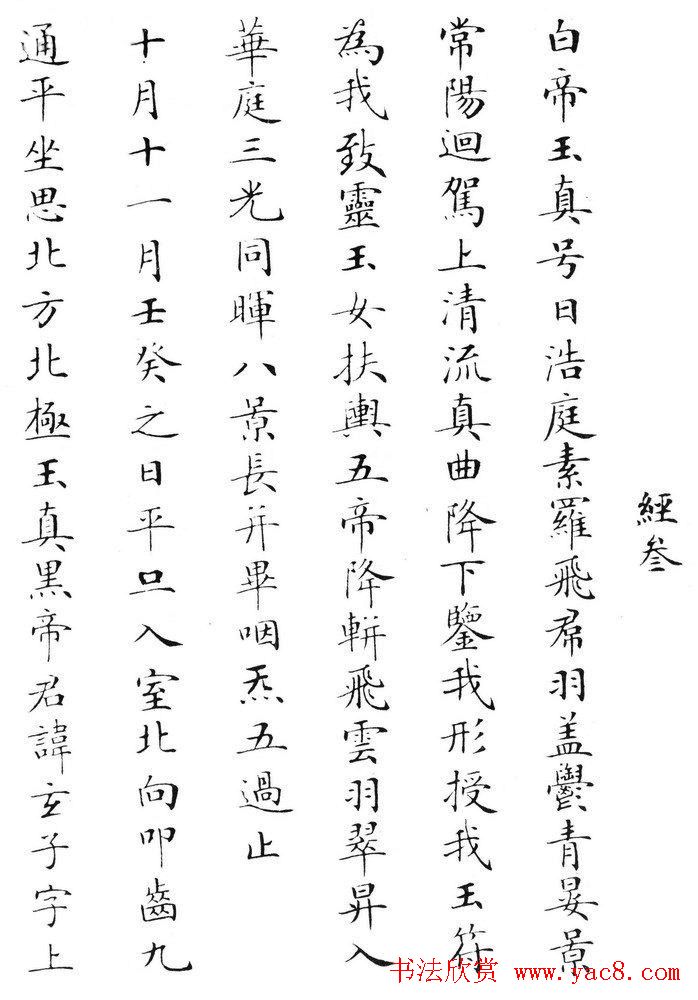 經叁
白帝玉真号曰浩庭素羅飛帬羽盖鬱青晏景
常陽迴駕上清流真曲降下鑒我形授我玉符
為我致靈玉女扶輿五帝降軿飛雲羽翠昇入
華庭三光同暉八景長并畢咽炁五過止
十月十一月壬癸之日平旦入室北向叩齒九
通平坐思北方北極玉真黑帝君諱玄子字上
书法欣赏 www.yac8.com